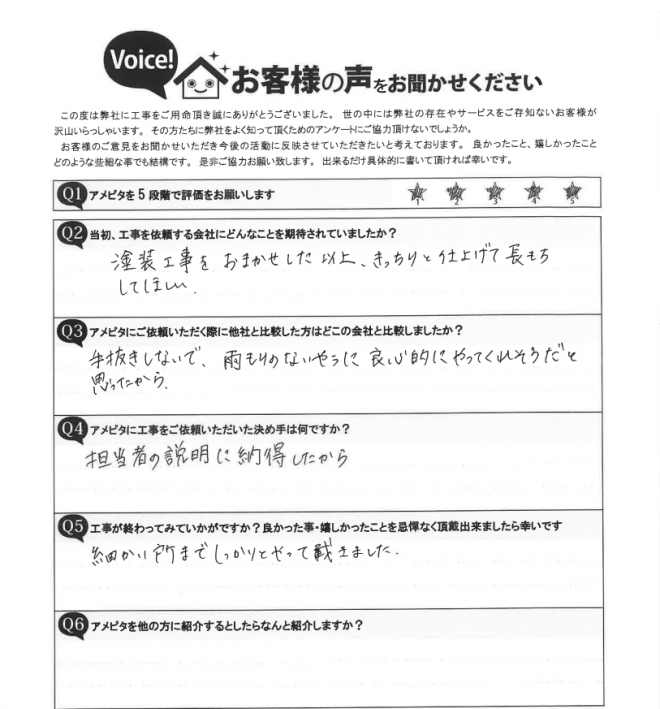 Voice!
お客様の声をお聞かせください
この度は弊社に工事をご用命頂き誠にありがとうございました。 世の中には弊社の存在やサービスをご存知ないお客様が
沢山いらっしゃいます。 その方たちに弊社をよく知って頂くためのアンケートにご協力頂けないでしょうか。
お客様のご意見をお聞かせいただき今後の活動に反映させていただきたいと考えております。 良かったこと、嬉しかったこと
どのような些細な事でも結構です。 是非ご協力お願い致します。 出来るだけ具体的に書いて頂ければ幸いです。
Q1 アメピタを5段階で評価をお願いします
1 2 3 4 5
Q2 当初、工事を依頼する会社にどんなことを期待されていましたか?
塗装工事を おまかせした以上、きっちりと仕上げて長もち
してほしい.
Q3 アメピタにご依頼いただく際に他社と比較した方はどこの会社と比較しましたか?
手抜きしないで、雨もりのないやうに良心的にやってくれそうだと
思ったから.
Q4 アメピタに工事をご依頼いただいた決め手は何ですか?
担当者の説明に納得したから
Q5 工事が終わってみていかがですか?良かった事・嬉しかったことを忌憚なく頂戴出来ましたら幸いです
細かい所までしっかりとやって戴きました.
Q6 アメピタを他の方に紹介するとしたらなんと紹介しますか?